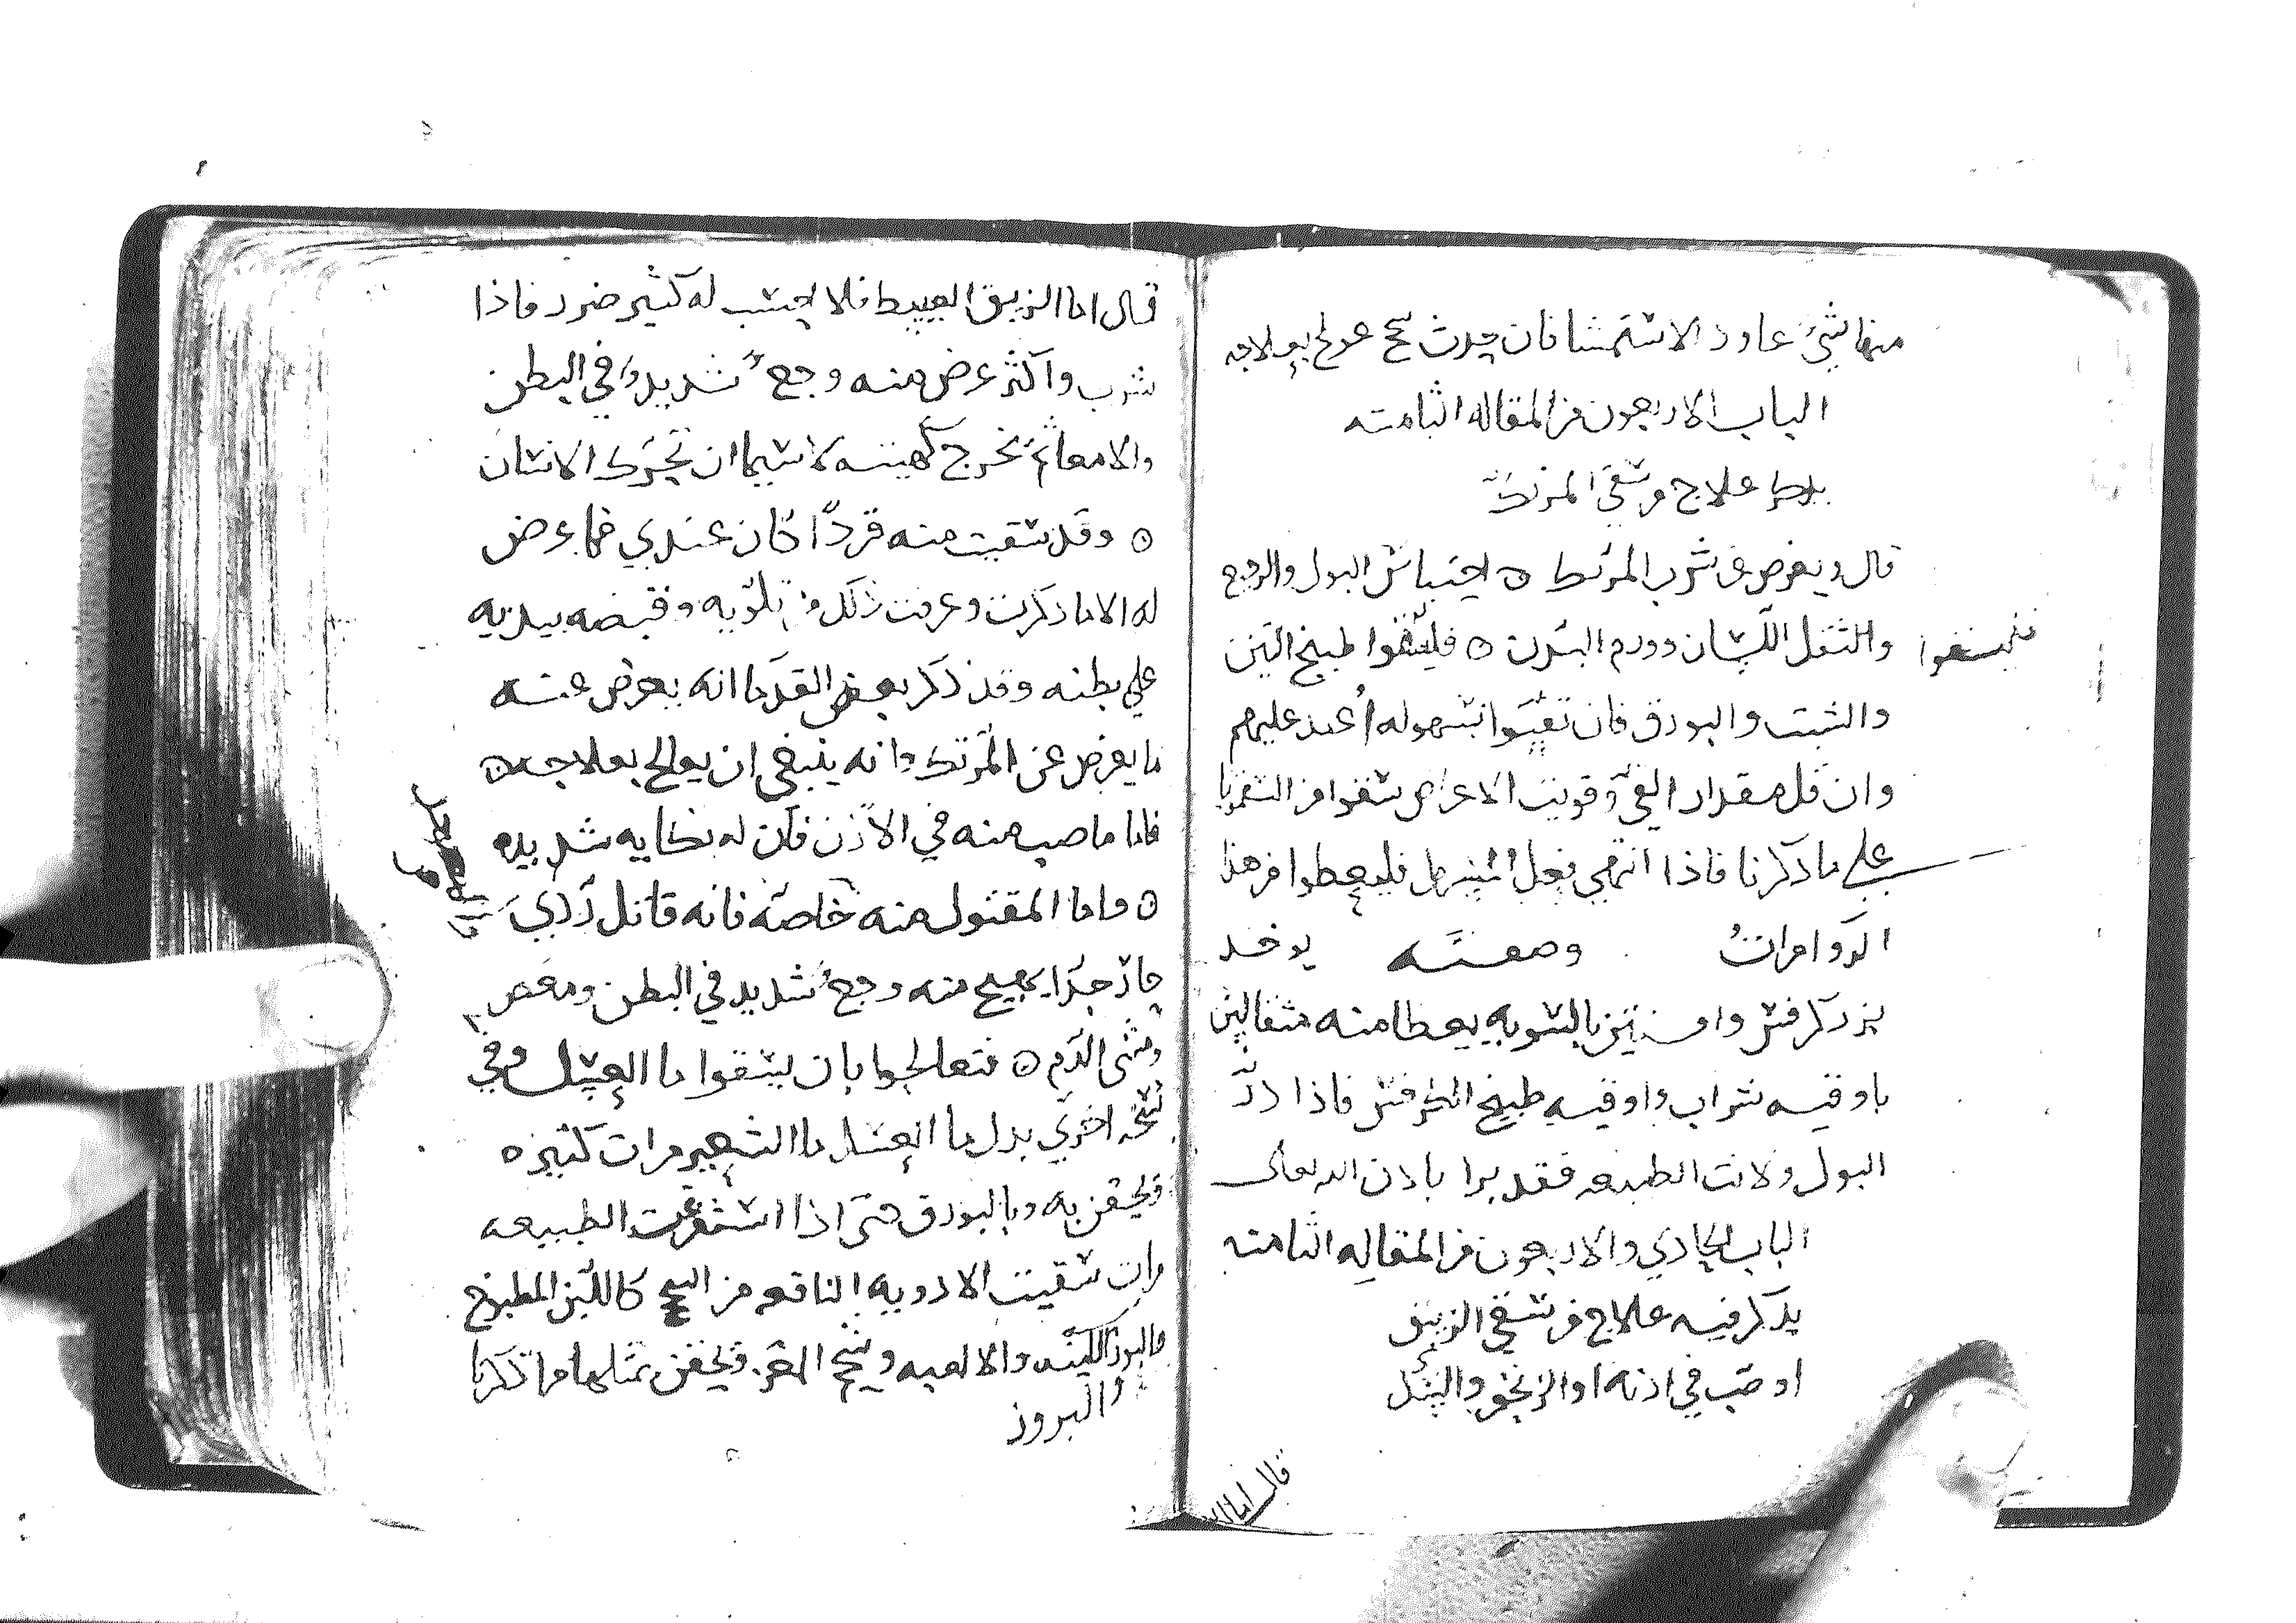 منها شيء عاود الاستمشا فان حدث سحج عولج بعلاجه
الباب الاربعون من المقاله الثامنه
يذكر علاج من سقي المرتك
قال ويعرض عن شرب المرتك ه احتباس البول والرجيع
والثقل اللسان وورم البدن ه فليسقوا طبيخ التين
فليسقوا
والشبت والبورق فان تقيوا بسهوله اعيد عليهم
وان قل مقدار القي وقويت الاعراض سقوا من السقمونيا
علي ما ذكرنا فاذا انتهي فعل المسهل فليعطوا من هذا
الدوا مرات وصفته يوخذ
بزر كرفس وافسنتين بالسويه يعطا منه مثقالين
باوقيه شراب واوقيه طبيخ الكرفس فاذا درّ
البول ولانت الطبيعه فقد برا باذن الله تعالى
الباب الحادي والاربعون من المقاله الثامنه
يذكر فيه علاج من سقي الزيبق
او صب في اذنه او الزنجفر والسك
قال اما ال
قال اما الزيبق العبيط فلا احسب له كثير ضرر فاذا
شرب واكثر عرض منه وجع شديد في البطن
والامعا ثم يخرج كهيته لا سيما ان تحرك الانسان
ه وقد سقيت منه قردًا كان عندي فما عرض
له الا ما ذكرت وعرفت ذلك من تلويه وقبضه بيديه
علي بطنه وقد ذكر بعض القدما انه يعرض عنه
ما يعرض عن المرتك وانه ينبغي ان يعالج بعلاجه ه
فاما ما صب منه في الاذن فان له نكايه شديده
ه واما المقتول منه خاصّه فانه قاتل ردي
حاد جدًا يهيج منه وجع شديد في البطن ومغص
ومشي الدم ه فتعالجوا بان يسقوا ما العسل وفي
نسخه اخري بدل ما العسل ما الشعير مرات كثيره
ويحقن به وبالبورق حتى اذا استفرغت الطبيعه
وان سقيت الادويه النافعه من السحج كاللبن المطبوخ
والبزور اللينه والالعبه وشحم المعز ويحقن بمثلها مما ذكرنا
والبروز